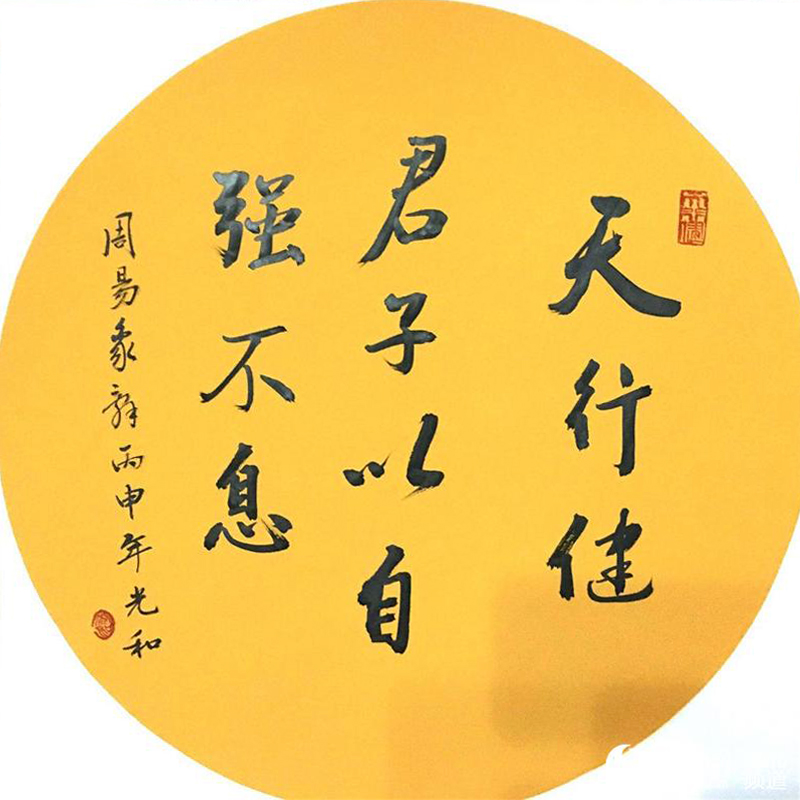 天行健
君子以自
强不息
周易象辞丙申年光和
频道